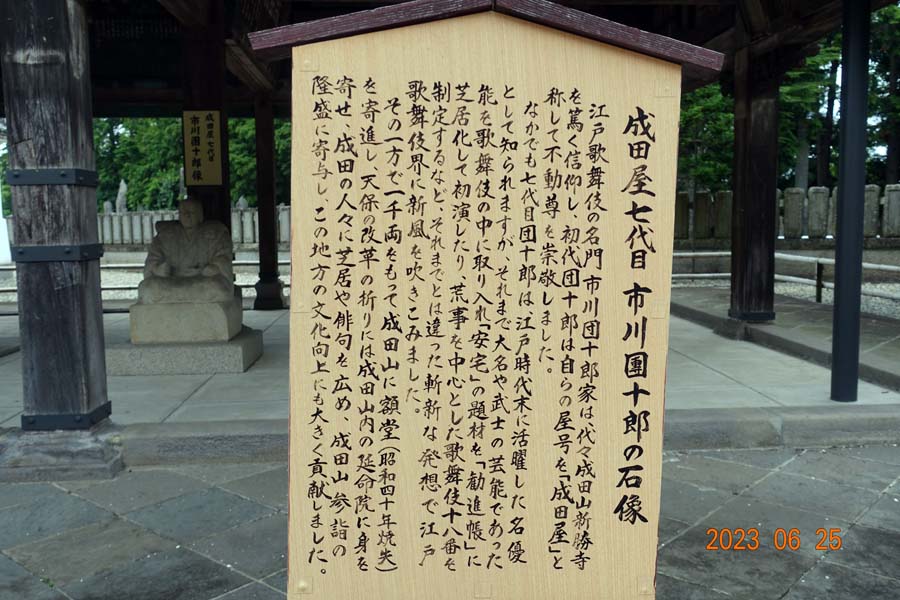 成田屋七代目 市川團十郎の石像
江戸歌舞伎の名門市川団十郎家は、代々成田山新勝寺
を篤く信仰し、初代団十郎は自らの屋号を「成田屋」と
称して不動尊を崇敬しました。
なかでも七代目団十郎は、江戸時代末に活躍した名優
として知られますが、それまで大名や武士の芸能であった
能を歌舞伎の中に取り入れ「安宅」の題材を「勧進帳」に
芝居化して初演したり、荒事を中心とした歌舞伎十八番を
制定するなど、それまでとは違った斬新な発想で江戸
歌舞伎界に新風を吹きこみました。
その一方で一千両をもって成田山に額堂(昭和四十年焼失)
を寄進し、天保の改革の折りには成田山内の延命院に身を
寄せ、成田の人々に芝居や俳句を広め、成田山参詣の
隆盛に寄与し、この地方の文化向上にも大きく貢献しました。
成田屋七代目
市川團十郎像
2023 06 25